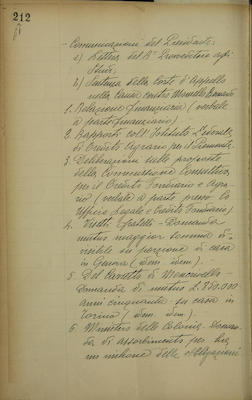 212
- Comunicazioni del Presidente:
a) Lettera del R° Provveditore agli
Studi;
b) Sentenza della Corte d'Appello
nella causa contro Morello Romano
1. Relazione finanziaria (verbale
a parte finanziario)
2. Rapporti coll'Istituto Federale
di Credito Agrario per il Piemonte.
3. Deliberazioni sulle proposte
della Commissione Consultiva
per il Credito Fondiario e Agra-
rio (verbale a parte presso lo
Ufficio Legale e Credito Fondiario)
4. Fratelli - Domanda
mutuo maggior somma di-
visibile su porzione di casa
in Genova (Idem Idem).
5. Del Carretto di Moncrivello -
Domanda di mutuo L. 350.000
anni cinquanta su casa in
Torino (Idem Idem).
6. Ministero delle Colonie - Doman-
da di assorbimento per
un milione delle Obbligazioni